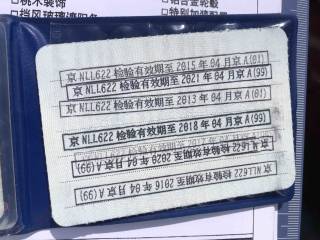 □桃木装饰
□挡风玻璃遮阳条
□铝合金轮毂
□特别加装配置
京NLL622 检验有效期至 2015 年 04 月京 A(01)
京 NLL622 检验有效期至 2021 年 04 月京 A(99)
京 NLL622 检验有效期至 2013 年 04 月京 A(01)
京 NLL622 检验有效期至 2018 年 04 月京 A(99)
京 NLL622 检验有效期至 2020 年 04 月京 A(99)
京 NLL622 检验有效期至 2016 年 04 月京 A(99)